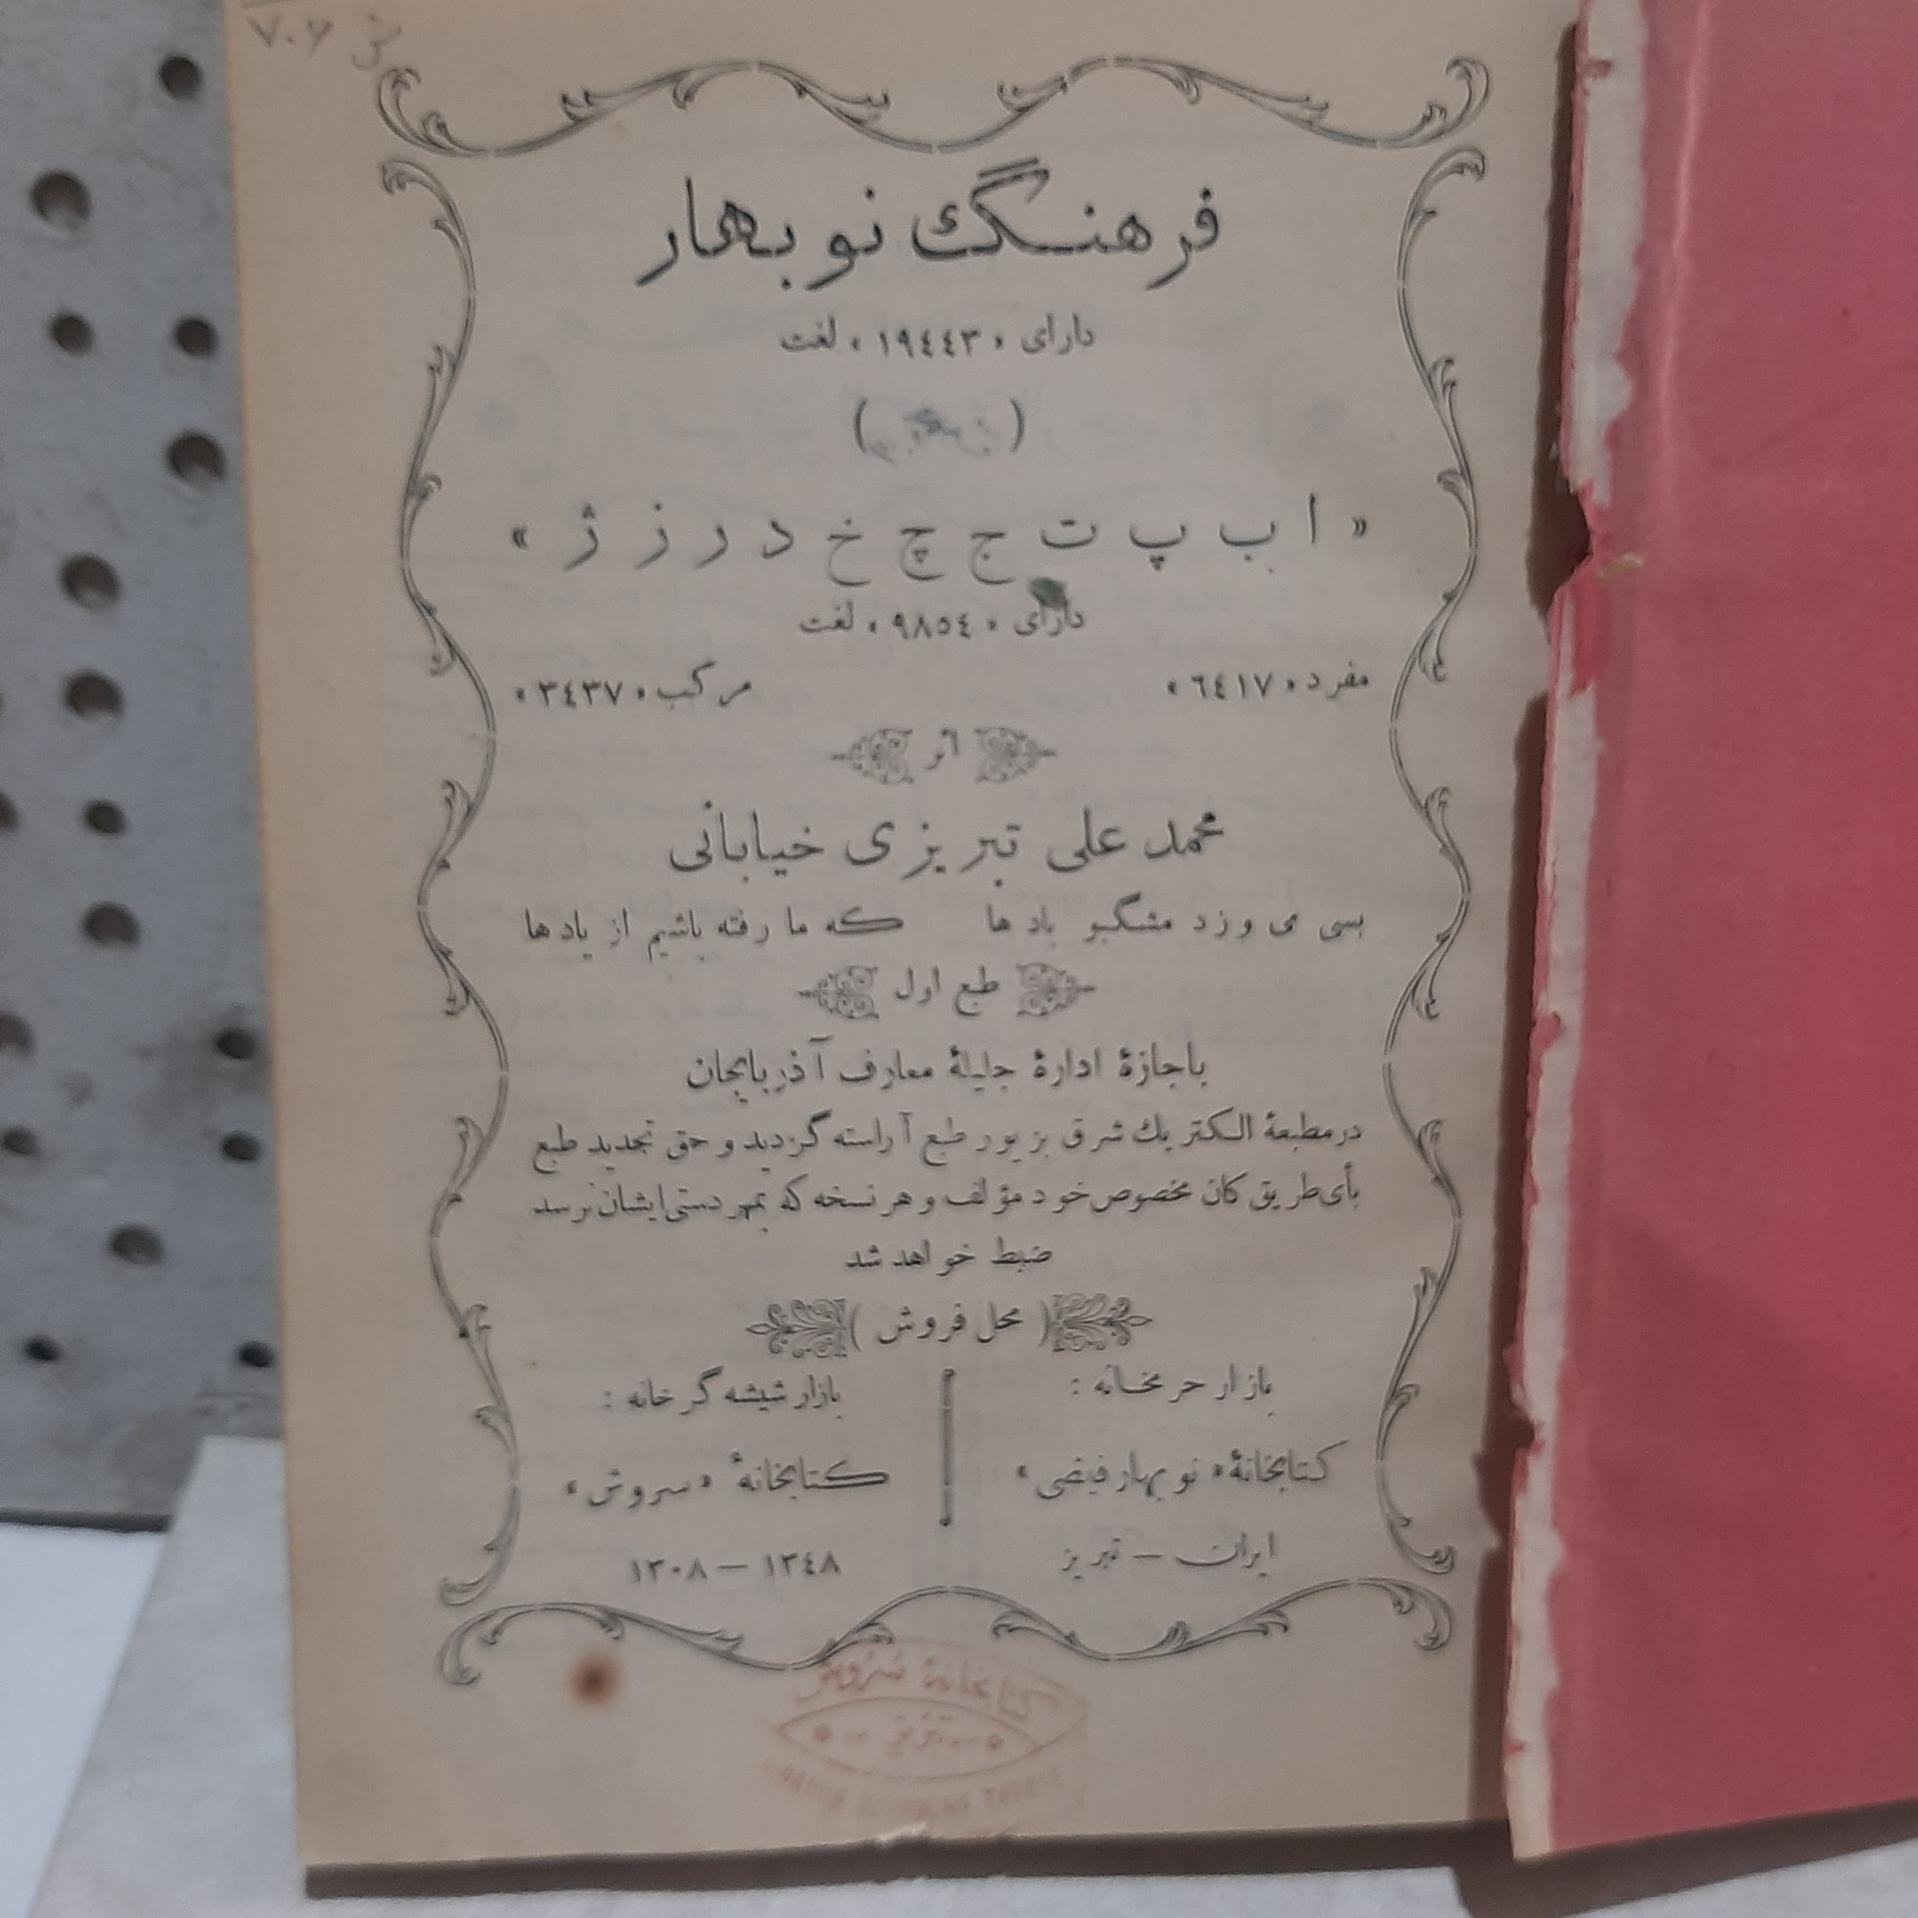 ۷۰۶
فرهنگ نو بهار
دارای «۱۹٤٤۳» لغت
« ا ب پ ت ج چ خ د ر ز ژ »
دارای «۹۸٥٤» لغت
مفرد «٦٤۱۷» مرکب «۳٤۳۷»
اثر
محمد علی تبریزی خیابانی
بسی می وزد مشگبو بادها که ما رفته باشیم از یادها
طبع اول
باجازهٔ ادارهٔ جلیلهٔ معارف آذربایجان
در مطبعهٔ الکتریک شرق بزیور طبع آراسته گردید و حق تجدید طبع
بأی طریق کان مخصوص خود مؤلف و هر نسخه که بمهر دستی ایشان نرسد
ضبط خواهد شد
( محل فروش )
بازار حرمخانه : بازار شیشه گرخانه :
کتابخانهٔ «نوبهار فیضی» کتابخانهٔ «سروش»
ایران — تبریز ۱۳٤۸ — ۱۳۰۸
کتابخانهٔ سروش
تبریز